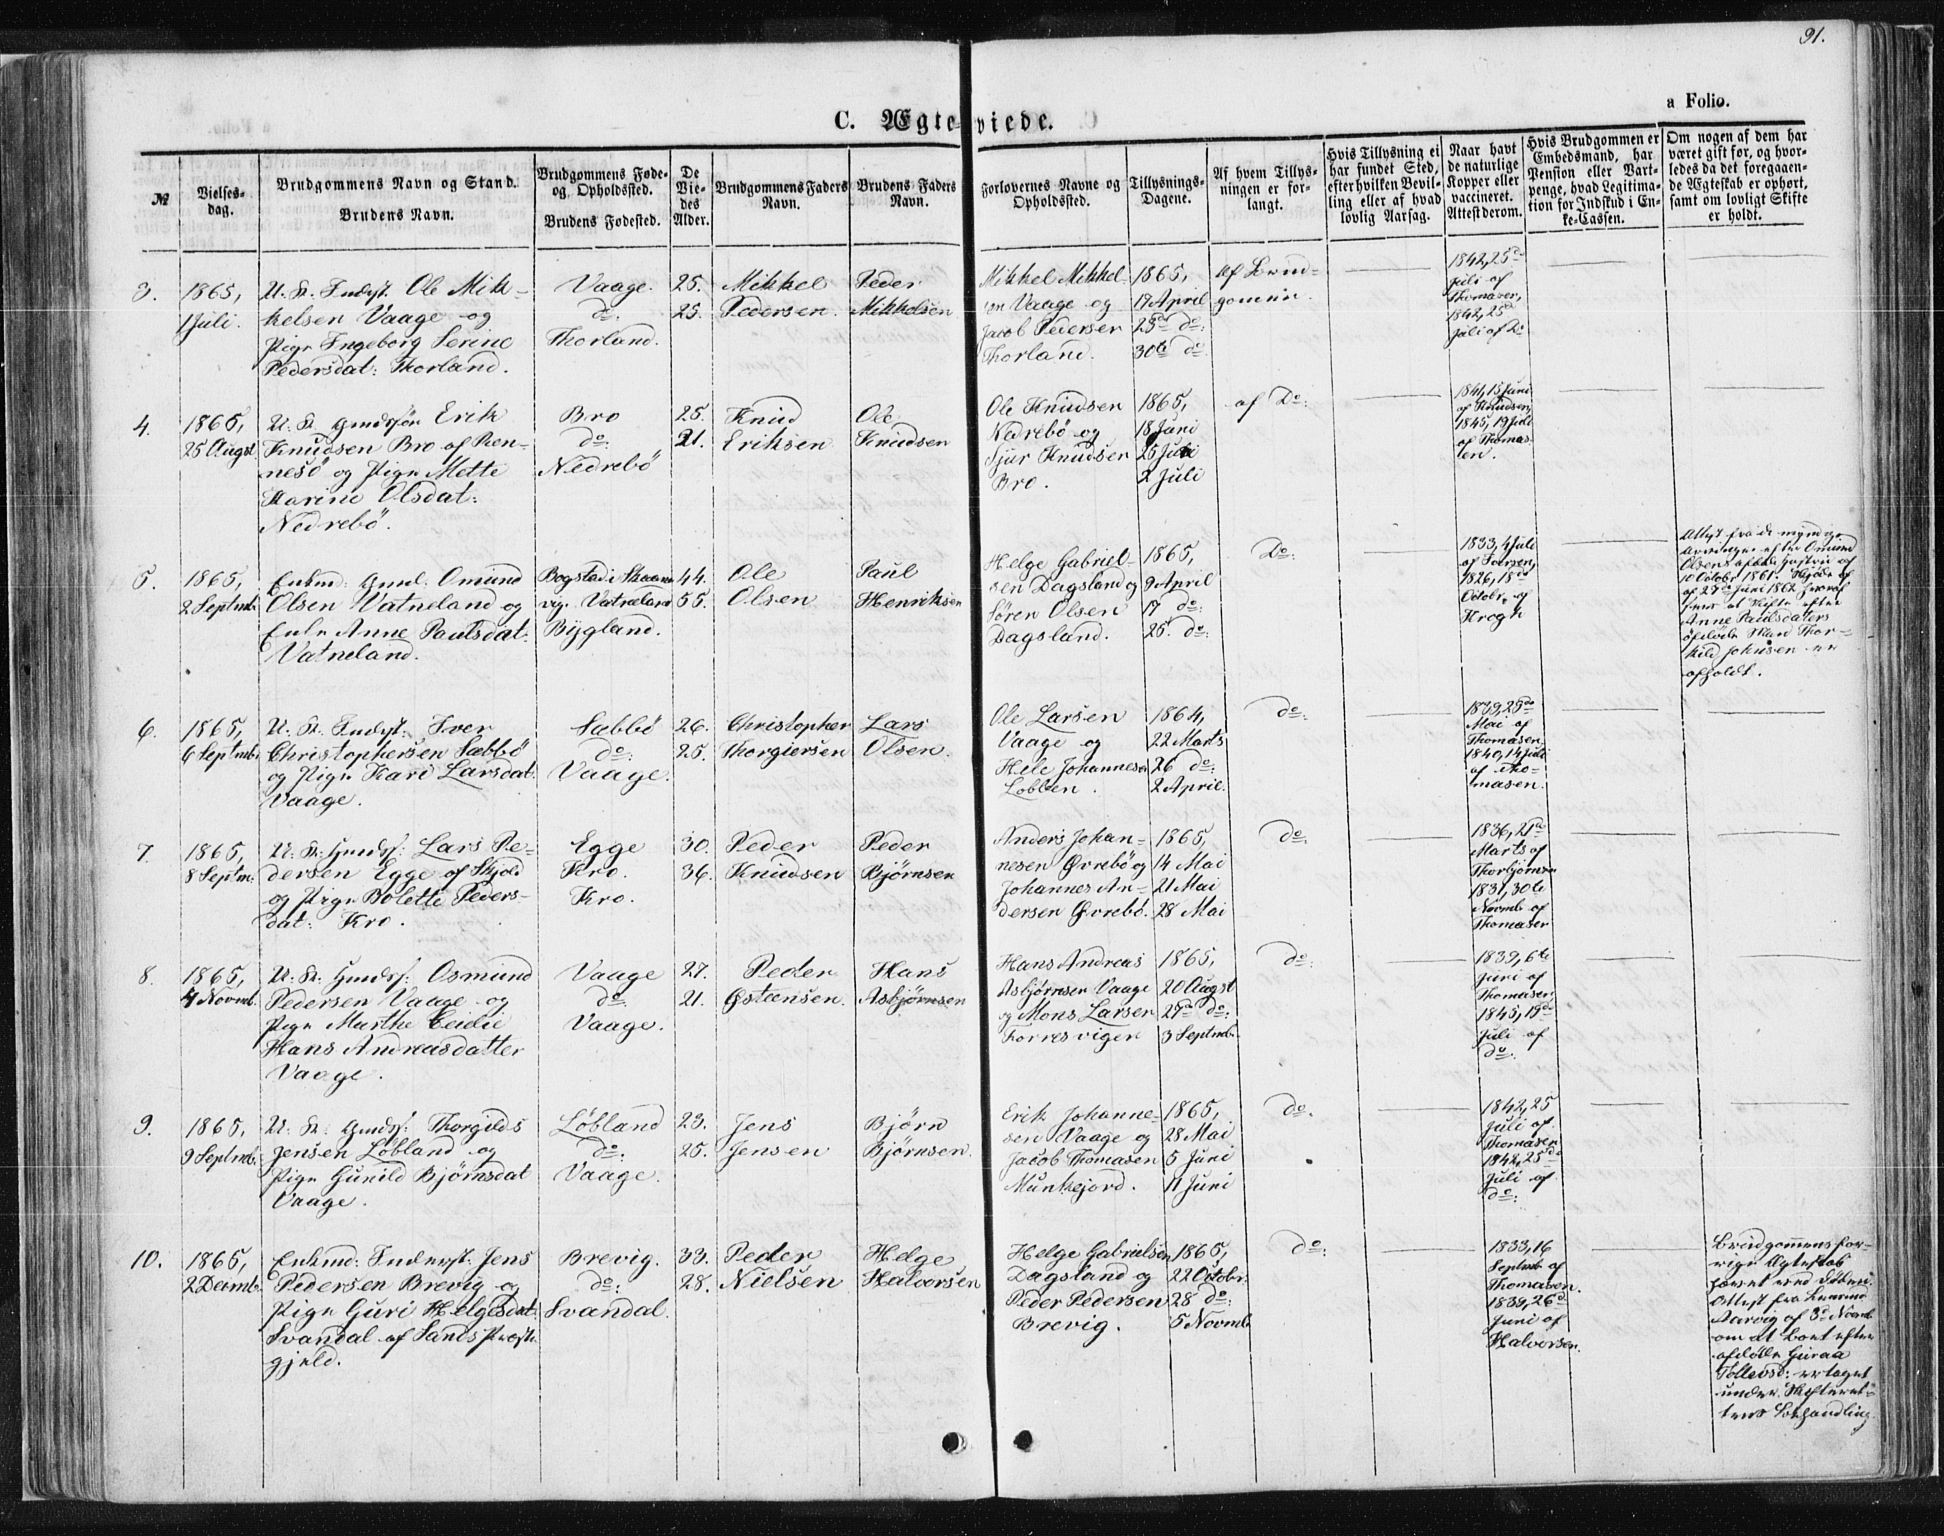 91.
a Folio.
C. Ægteviede.
№
Vielses-
dag.
Brudgommens Navn og Stand.
Brudens Navn.
Brudgommens Føde-
og Opholdssted.
Brudens Fødested.
De
Vie-
des
Alder.
Brudgommens Faders
Navn.
Brudens Faders
Navn.
Forlovernes Navne og
Opholdssted.
Tillysnings-
Dagene.
Af hvem Tillys-
ningen er for-
langt.
Hvis Tillysning ei
har fundet Sted,
efter hvilken Bevil-
ling eller af hvad
lovlig Aarsag.
Naar havt
de naturlige
Kopper eller
vaccineret.
Attest derom.
Hvis Brudgommen er
Embedsmand, har
Pension eller Vart-
penge, hvad Legitima-
tion for Indskud i En-
ke-Cassen.
Om nogen af dem har
været gift før, og hvor-
ledes da det foregaaen-
de Ægteskab er ophørt,
samt om lovligt Skifte
er holdt.
3.
1865,
1 Juli.
U. K. Inderst. Ole Mik-
kelsen Vaage og
Pige Ingeborg Serine
Pedersdat: Thorland.
Vaage.
do.
Thorland.
25.
25.
Mikkel
Pedersen.
Peder
Mikkelsen
Mikkel Mikkel-
sen Vaage og
Jacob Pedersen
Thorland.
1865,
17 April
23de do:
30te do.
Af Brud-
gommen.
1842, 25de
Juli af
Thomasen,
1842, 25de
Juli af Do
4.
1865,
25 Augst
U. K. Gmdssøn Erik
Knudsen Bro af Ren-
nesö og Pige Mette
Karine Olsdat:
Nedrebö.
Bro
do:
Nedrebö
25.
21.
Knud
Eriksen
Ole
Knudsen
Ole Knudsen
Nedrebö og
Sjur Knudsen
Bro.
1865,
18 Juni
25 Juni
2 Juli
af Do:
1841, 15 Juni
af Knudsen,
1845, 19 Juli
af Thomas-
sen.
5.
1865,
2 Septmb:
Enkmd: Gmd. Omund
Olsen Vatneland og
Enke Anne Paulsdat:
Vatneland.
Bogsted i Skaane-
vig. Vatneland
Bygland.
44.
55.
Ole
Olsen
Paul
Henriksen
Helge Gabriel-
sen Dagsland og
Søren Olsen
Dagsland.
1865,
9 April
17 do:
25. do:
Do:
1833, 4 Juli
af Iversen,
1826, 18de
Octobr. af
Krogh
Attest fra de myndige
Arvinger efter Omund
Olsens afdøde Hustru af
10 Octobr 1861. Skjøde af
af 27de Juni 1862 hvoraf
sees at Skifte efter
Anne Paulsdaters
afdøde Mand Thor-
kild Johnsen er
afholdt.
6.
1865,
6 Septmb:
U. K. Inderst. Iver
Christophersen Sæbbö
og Pige Kari Larsdat:
Vaage.
Sæbbö
do:
Vaage.
26.
25.
Christopher
Thorgiersen
Lars
Olsen.
Ole Larsen
Vaage og
Hele Johannesen
Lobben.
1864,
22 Marts
26 do:
2 April.
do:
1839, 25de
Mai af
Thomasen.
1840, 14 Juli
af Tho-
masen.
7.
1865,
8 Septm.
U. K. Gmdss: Lars Pe-
dersen Egge af Skjold
og Pige Bolette Peders-
dat: Kro.
Egge
Kro.
Kro.
30.
36.
Peder
Knudsen
Peder
Bjørnsen
Anders Johan-
nesen Øvrebö og
Johannes An-
dersen Øvrebö.
1865,
14 Mai
21 Mai
28 Mai
do:
1836, 21de
Marts af
Thorbjørnsen
1831, 30te
Novmb. af
Thomasen
8.
1865,
4 Novmb.
U. K. Gmdss: Osmund
Pedersen Vaage og
Pige Marthe Ceidie
Hans Andreasdatter
Vaage.
Vaage
do:
Vaage.
27.
21.
Peder
Østensen.
Hans
Asbjørnsen
Hans Andreas
Asbjørnsen Vaage
og Mons Larsen
Forresvigen
1865,
20 Augst
27de do:
3 Septmb.
do:
1839, 6te
Juni af
Thomasen,
1845, 19de
Juli af
do:
9.
1865,
9 Septmb.
U. K. Gmdss: Thorgilds
Jensen Løbland og
Pige Gunild Bjørnsdat
Vaage.
Løbland
do:
Vaage.
23.
25.
Jens
Jensen
Bjørn
Bjørnsen.
Erik Johanne-
sen Vaage og
Jacob Thomasen
Munkejord.
1865,
28 Mai
5 Juni
11 Juni
do.
1842, 25
Juli af
Thomasen
1842, 25de
Juli af
do:
10.
1865,
2 Decmb.
Enkmd: Inderst: Jens
Pedersen Brevig og
Pige Guri Helgesdat:
Svandal af Sands Præste-
gjeld.
Brevig.
do:
Svandal.
33.
28.
Peder
Nielsen
Helge
Halvorsen
Helge Gabrielsen
Dagsland og
Peder Pedersen
Brevig.
1865,
22 Octobr.
28 do:
5 Novmb.
do:
1833, 16
Septmb. af
Thomasen.
1839, 26de
Juni af
Halvorsen.
Brudgommens for-
rige Ægteskab
hævet ved Døden.
Attest fra Lensmd
Aarvig af 3de Novmb
om at Boet efter
afdøde Guraa
Tollevsd: er taget
under Skifteret-
tens Behandling.